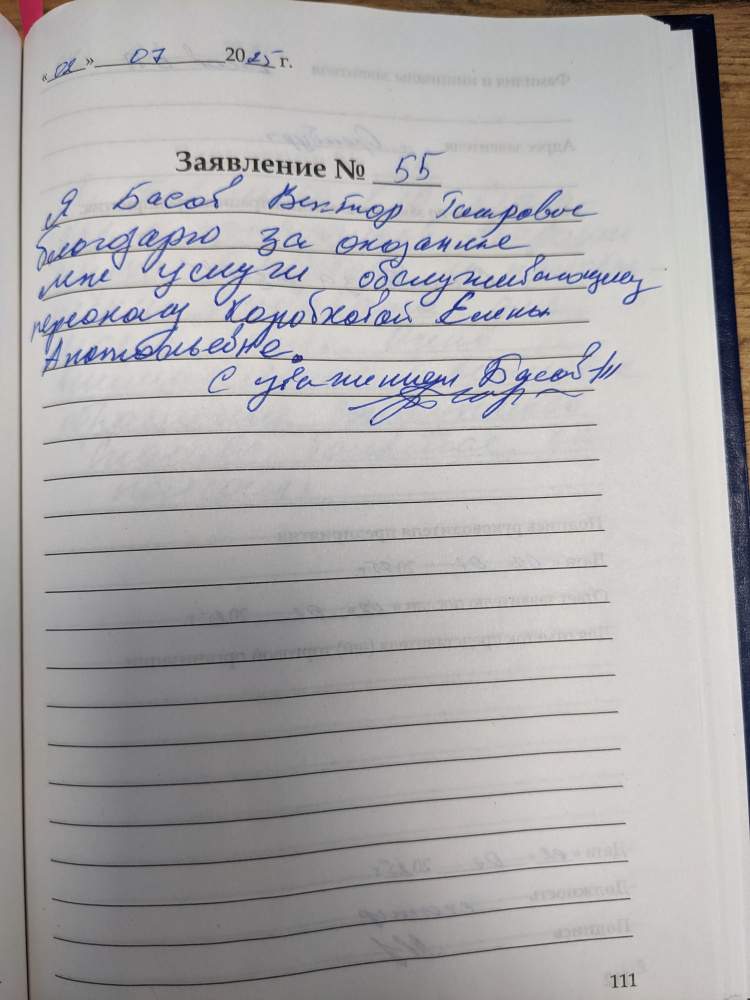 «02» 07 2025 г.
Заявление № 55
Я Басов Виктор
благодарю за оказание
мне услуги обслуживающему
персоналу Коробковой Елены
Анатольевне.
С уважением Басов
111